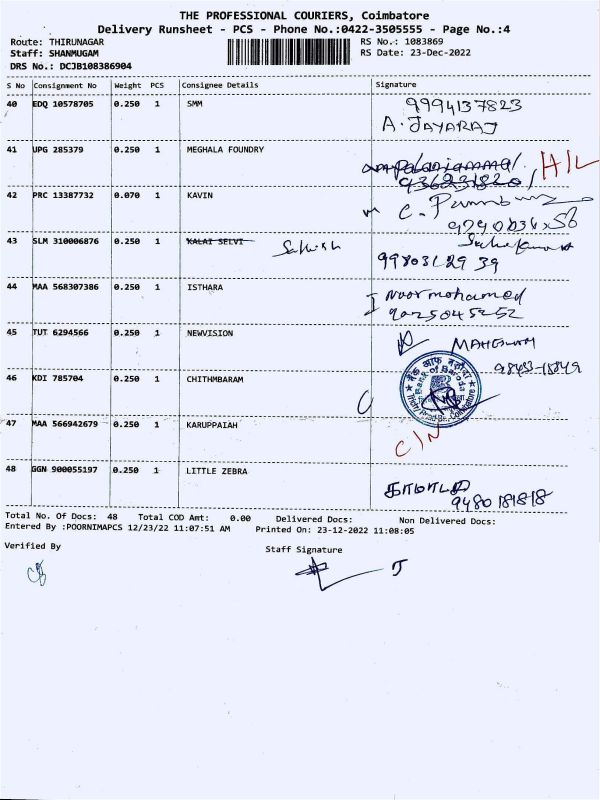 THE PROFESSIONAL COURIERS, Coimbatore
Delivery Runsheet - PCS - Phone No.:0422-3505555 - Page No.:4
Route: THIRUNAGAR
RS No.: 1083869
Staff: SHANMUGAM
RS Date: 23-Dec-2022
DRS No.: DCJB108386904
S No Consignment No Weight PCS Consignee Details Signature
40 EDQ 10578705 0.250 1 SMM 9994137823
A. JAYARAJ
41 UPG 285379 0.250 1 MEGHALA FOUNDRY
H/L
42 PRC 13387732 0.070 1 KAVIN
43 SLM 310006876 0.250 1 KALAI SELVI Sathish
44 MAA 568307386 0.250 1 ISTHARA Noor mohamed
9025045252
45 TUT 6294566 0.250 1 NEWVISION
46 KDI 785704 0.250 1 CHITHMBARAM
बैंक ऑफ बड़ौदा
Bank of Baroda
Coimbatore
47 MAA 566942679 0.250 1 KARUPPAIAH C/N
48 GGN 900055197 0.250 1 LITTLE ZEBRA
9480181818
Total No. Of Docs: 48 Total COD Amt: 0.00 Delivered Docs: Non Delivered Docs:
Entered By :POORNIMAPCS 12/23/22 11:07:51 AM Printed On: 23-12-2022 11:08:05
Verified By
Staff Signature